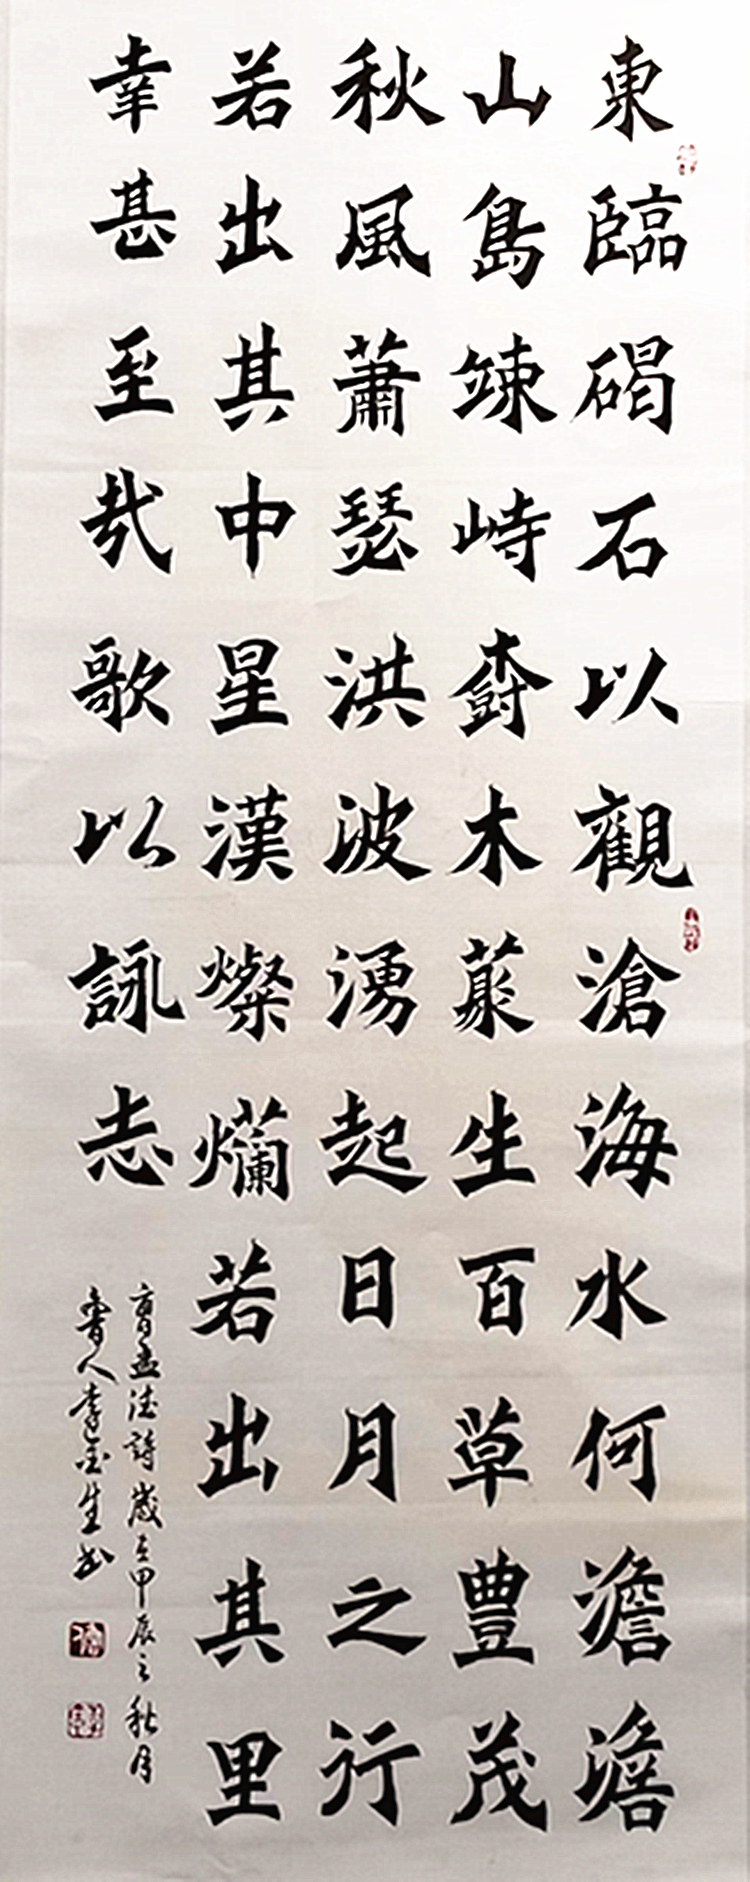 東臨碣石以觀滄海水何澹澹
山島竦峙樹木叢生百草豊茂
秋風蕭瑟洪波湧起日月之行
若出其中星漢燦爛若出其里
幸甚至哉歌以詠志
曹孟德詩歲在甲辰之秋月
魯人李金生书